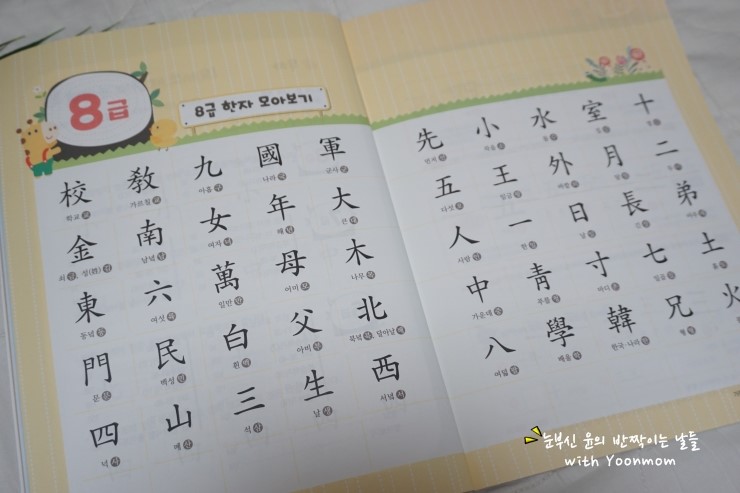 8급
8급 한자 모아보기
校 敎 九 國 軍
학교 교 가르칠 교 아홉 구 나라 국 군사 군
金 南 女 年 大
쇠 금, 성(姓) 김 남녘 남 여자 녀 해 년 큰 대
東 六 萬 母 木
동녘 동 여섯 륙 일만 만 어미 모 나무 목
門 民 白 父 北
문 문 백성 민 흰 백 아비 부 북녘 북, 달아날 배
四 山 三 生 西
넉 사 메 산 석 삼 날 생 서녘 서
先 小 水 室 十
먼저 선 작을 소
五 王 外 月 二
다섯 오 임금 왕 바깥 외 달 월 두 이
人 一 日 長 弟
사람 인 한 일 날 일 긴 장 아우 제
中 靑 寸 七 土
가운데 중 푸를 청 마디 촌 일곱 칠 흙 토
八 學 韓 兄 火
여덟 팔 배울 학 한국·나라 한 형 형
눈부신 윤의 반짝이는 날들
with Yoonmom